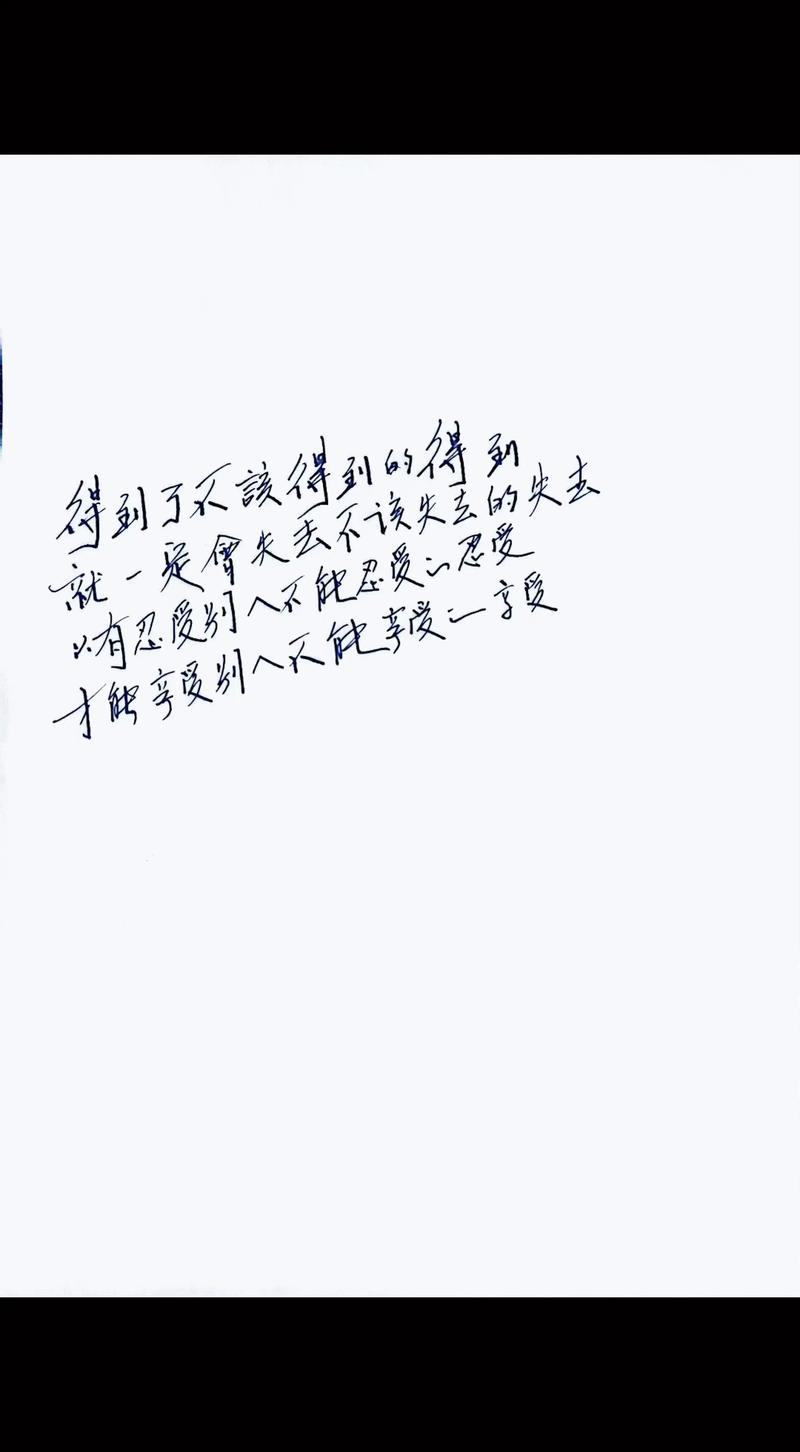 得到了不該得到的得到
就一定會失去不该失去的失去
以有忍受别人不能忍受的忍受
才能享受别人不能享受的享受